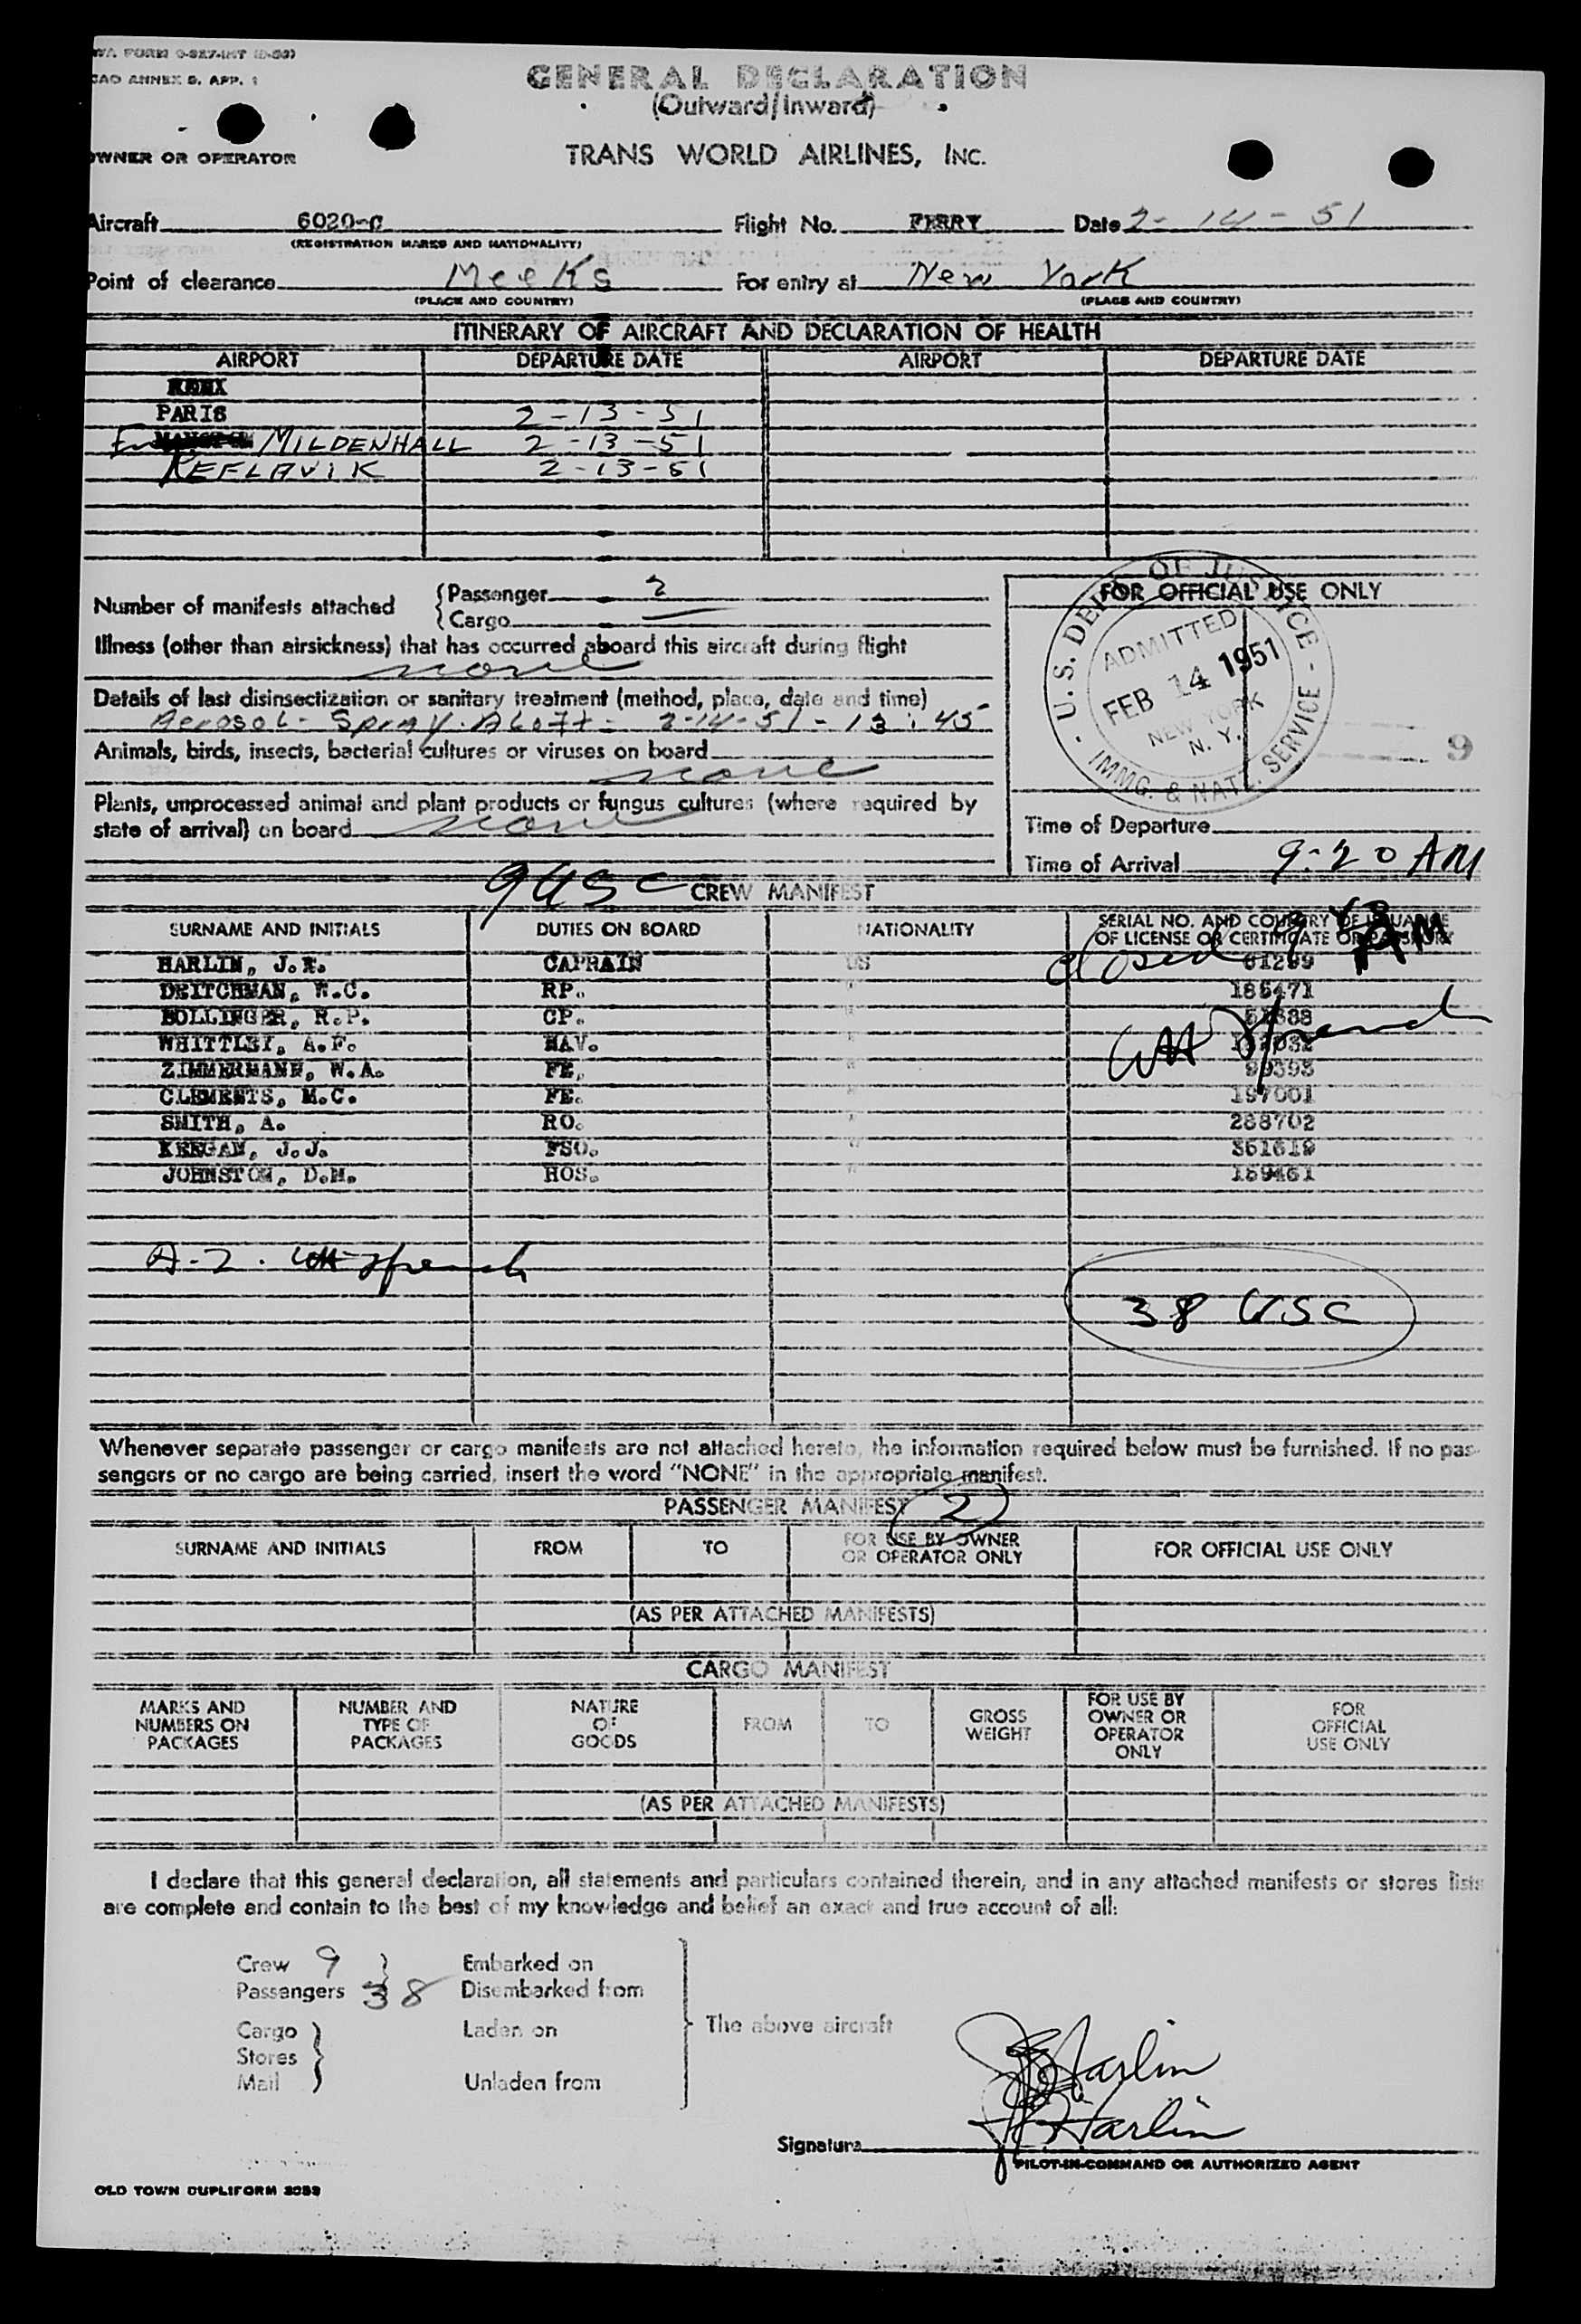 WA FORM O-327-INT (2-50)
CAO ANNEX 9, APP. 1
GENERAL DECLARATION
(Outward/Inward)
OWNER OR OPERATOR
TRANS WORLD AIRLINES, INC.
Aircraft 6020-C Flight No. FERRY Date 2-14-51
(REGISTRATION MARKS AND NATIONALITY)
Point of clearance Meeks For entry at New York
(PLACE AND COUNTRY) (PLACE AND COUNTRY)
ITINERARY OF AIRCRAFT AND DECLARATION OF HEALTH
AIRPORT DEPARTURE DATE AIRPORT DEPARTURE DATE
PARIS 2-13-51
MILDENHALL 2-13-51
KEFLAVIK 2-13-51
Number of manifests attached {Passenger 2
{Cargo —
Illness (other than airsickness) that has occurred aboard this aircraft during flight
none
Details of last disinsectization or sanitary treatment (method, place, date and time)
Aerosol-Spray-Aloft- 2-14-51-13:45
Animals, birds, insects, bacterial cultures or viruses on board
none
Plants, unprocessed animal and plant products or fungus cultures (where required by
state of arrival) on board none
FOR OFFICIAL USE ONLY
U.S. DEPT. OF JUSTICE - IMMG. & NATZ. SERVICE -
ADMITTED
FEB 14 1951
NEW YORK
N. Y.
9
Time of Departure
Time of Arrival 9-20 AM
9 USC
CREW MANIFEST
SURNAME AND INITIALS DUTIES ON BOARD NATIONALITY SERIAL NO. AND COUNTRY OF ISSUANCE
OF LICENSE OR CERTIFICATE OR PASSPORT
closed AM
HARLIN, J. CAPRAIN US 61299
DEITCHMAN, W.C. RP. " 185471
BOLLINGER, R.P. CP. "
WHITTLEY, A.F. NAV. "
ZIMMERMANN, W.A. FE. " 99393
CLEMENTS, M.C. FE. " 197001
SMITH, A. RO. " 288702
KEEGAN, J.J. FSO. " 361619
JOHNSTON, D.M. HOS. " 159461
A-2.
38 USC
Whenever separate passenger or cargo manifests are not attached hereto, the information required below must be furnished. If no pas-
sengers or no cargo are being carried, insert the word "NONE" in the appropriate manifest.
PASSENGER MANIFEST 2
SURNAME AND INITIALS FROM TO FOR USE BY OWNER OR OPERATOR ONLY FOR OFFICIAL USE ONLY
(AS PER ATTACHED MANIFESTS)
CARGO MANIFEST
MARKS AND NUMBERS ON PACKAGES NUMBER AND TYPE OF PACKAGES NATURE OF GOODS FROM TO GROSS WEIGHT FOR USE BY OWNER OR OPERATOR ONLY FOR OFFICIAL USE ONLY
(AS PER ATTACHED MANIFESTS)
I declare that this general declaration, all statements and particulars contained therein, and in any attached manifests or stores lists
are complete and contain to the best of my knowledge and belief an exact and true account of all:
Crew 9 } Embarked on
Passengers 38 Disembarked from
Cargo } Laden on The above aircraft
Stores
Mail Unladen from
J Harlin
J Harlin
Signature
PILOT-IN-COMMAND OR AUTHORIZED AGENT
OLD TOWN DUPLIFORM 3053